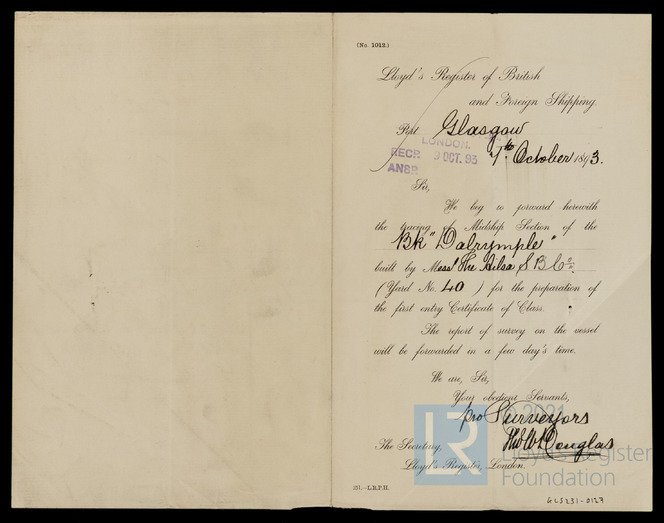 (No. 1012.)
Lloyd's Register of British
and Foreign Shipping.
Port Glasgow
LONDON.
RECD 9 OCT. 93
ANSR
7th October 1893.
Sir,
We beg to forward herewith
the tracing of Midship Section of the
Bk "Dalrymple"
built by Messrs The Ailsa S B Co
(Yard No. 40) for the preparation of
the first entry Certificate of Class.
The report of survey on the vessel
will be forwarded in a few day's time.
We are, Sir,
Your obedient Servants,
pro Surveyors
Douglas
The Secretary,
Lloyd's Register, London.
LR
© 2021
Lloyd's Register
Foundation
GLS231-0127